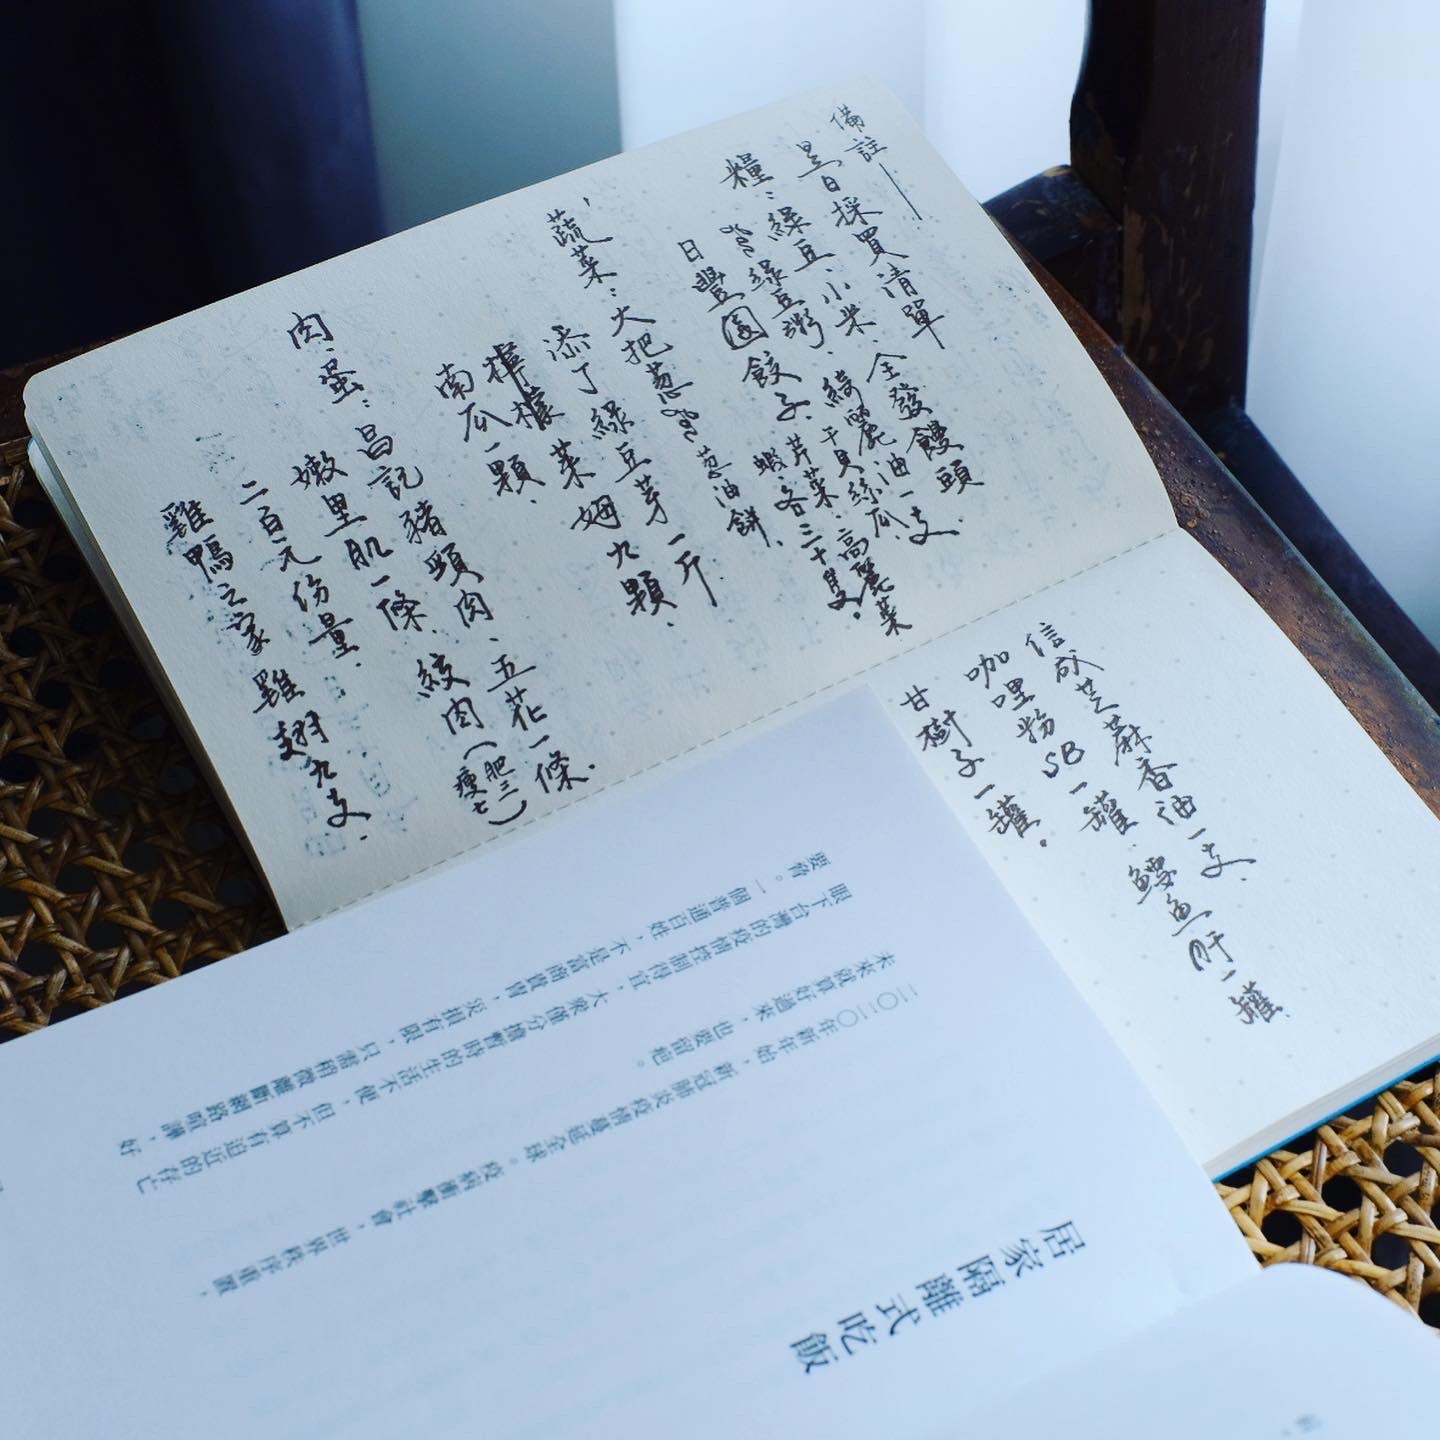 備註
昱日採買清單
糧：綠豆、小米、全發饅頭
綠豆粥、綺麗油一支
日豐園餃子、干貝絲瓜、高麗菜
芹菜、蝦、各二十隻。
蔬菜：大把蔥 蔥油餅、
添了綠豆芽一斤
檸檬 菜姆九顆、
南瓜一顆、
肉、蛋：昌記豬頸肉、五花一條、
嫩里肌一條、絞肉（肥三瘦七）
二百元份量、
雞鴨之家雞翅九支、
信成芝蔴香油一支、
咖哩粉SB一罐、鱈魚肝一罐、
甘樹子一罐。
居家隔離式吃飯
二〇二〇年新年始，新冠肺炎疫情蔓延全球。疫病衝擊社會，世界秩序重置，
未來就算好過來，也要留疤。
眼下台灣的疫情控制得宜，大眾僅分擔暫時的生活不便，但不算有迫近的存亡
要脅。一個普通百姓，不是富商貴賈，災損有限，只需稍微離斷網路喧譁，好